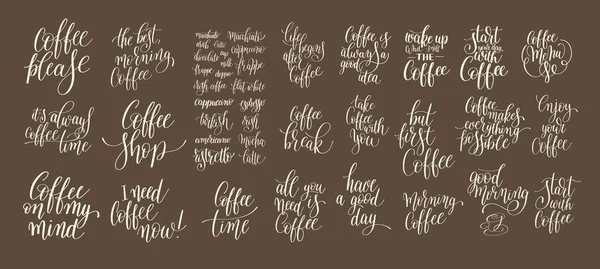 Coffee
please
the best
morning
Coffee
Macchiato
cappuccino
frappe
flat white
cappuccino
turkish
americano
ristretto
Mocha
Latte
Life
begins
after
Coffee
Coffee is
always a
good
idea
wake up
and smell
THE
COFFEE
start
your day
with
Coffee
Coffee
Menu
it's always
Coffee
time
Coffee
shop
Coffee
break
take
Coffee
with
you
but
first
Coffee
Coffee
makes
everything
possible
Enjoy
your
Coffee
Coffee
on my
mind
I need
Coffee
now!
Coffee
time
all you
need is
Coffee
have
a good
day
Morning
Coffee
good
Morning
start
with
Coffee